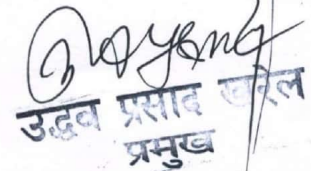 उद्धव प्रसाद खरेल
प्रमुख